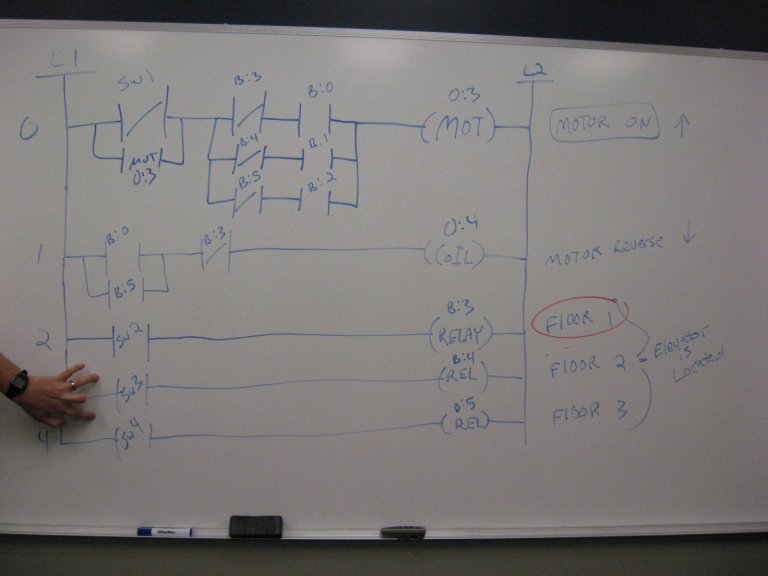 L1
L2
SW1
B:3
B:0
O:3
0
(MOT)
MOTOR ON ↑
MOT
O:3
B:4
B:1
B:5
B:2
B:0
B:3
O:4
1
(OIL)
MOTOR REVERSE ↓
B:5
B:3
2
SW2
(RELAY)
FLOOR 1
B:4
SW3
(REL)
FLOOR 2
Elevator
is
Located
B:5
4
SW4
(REL)
FLOOR 3